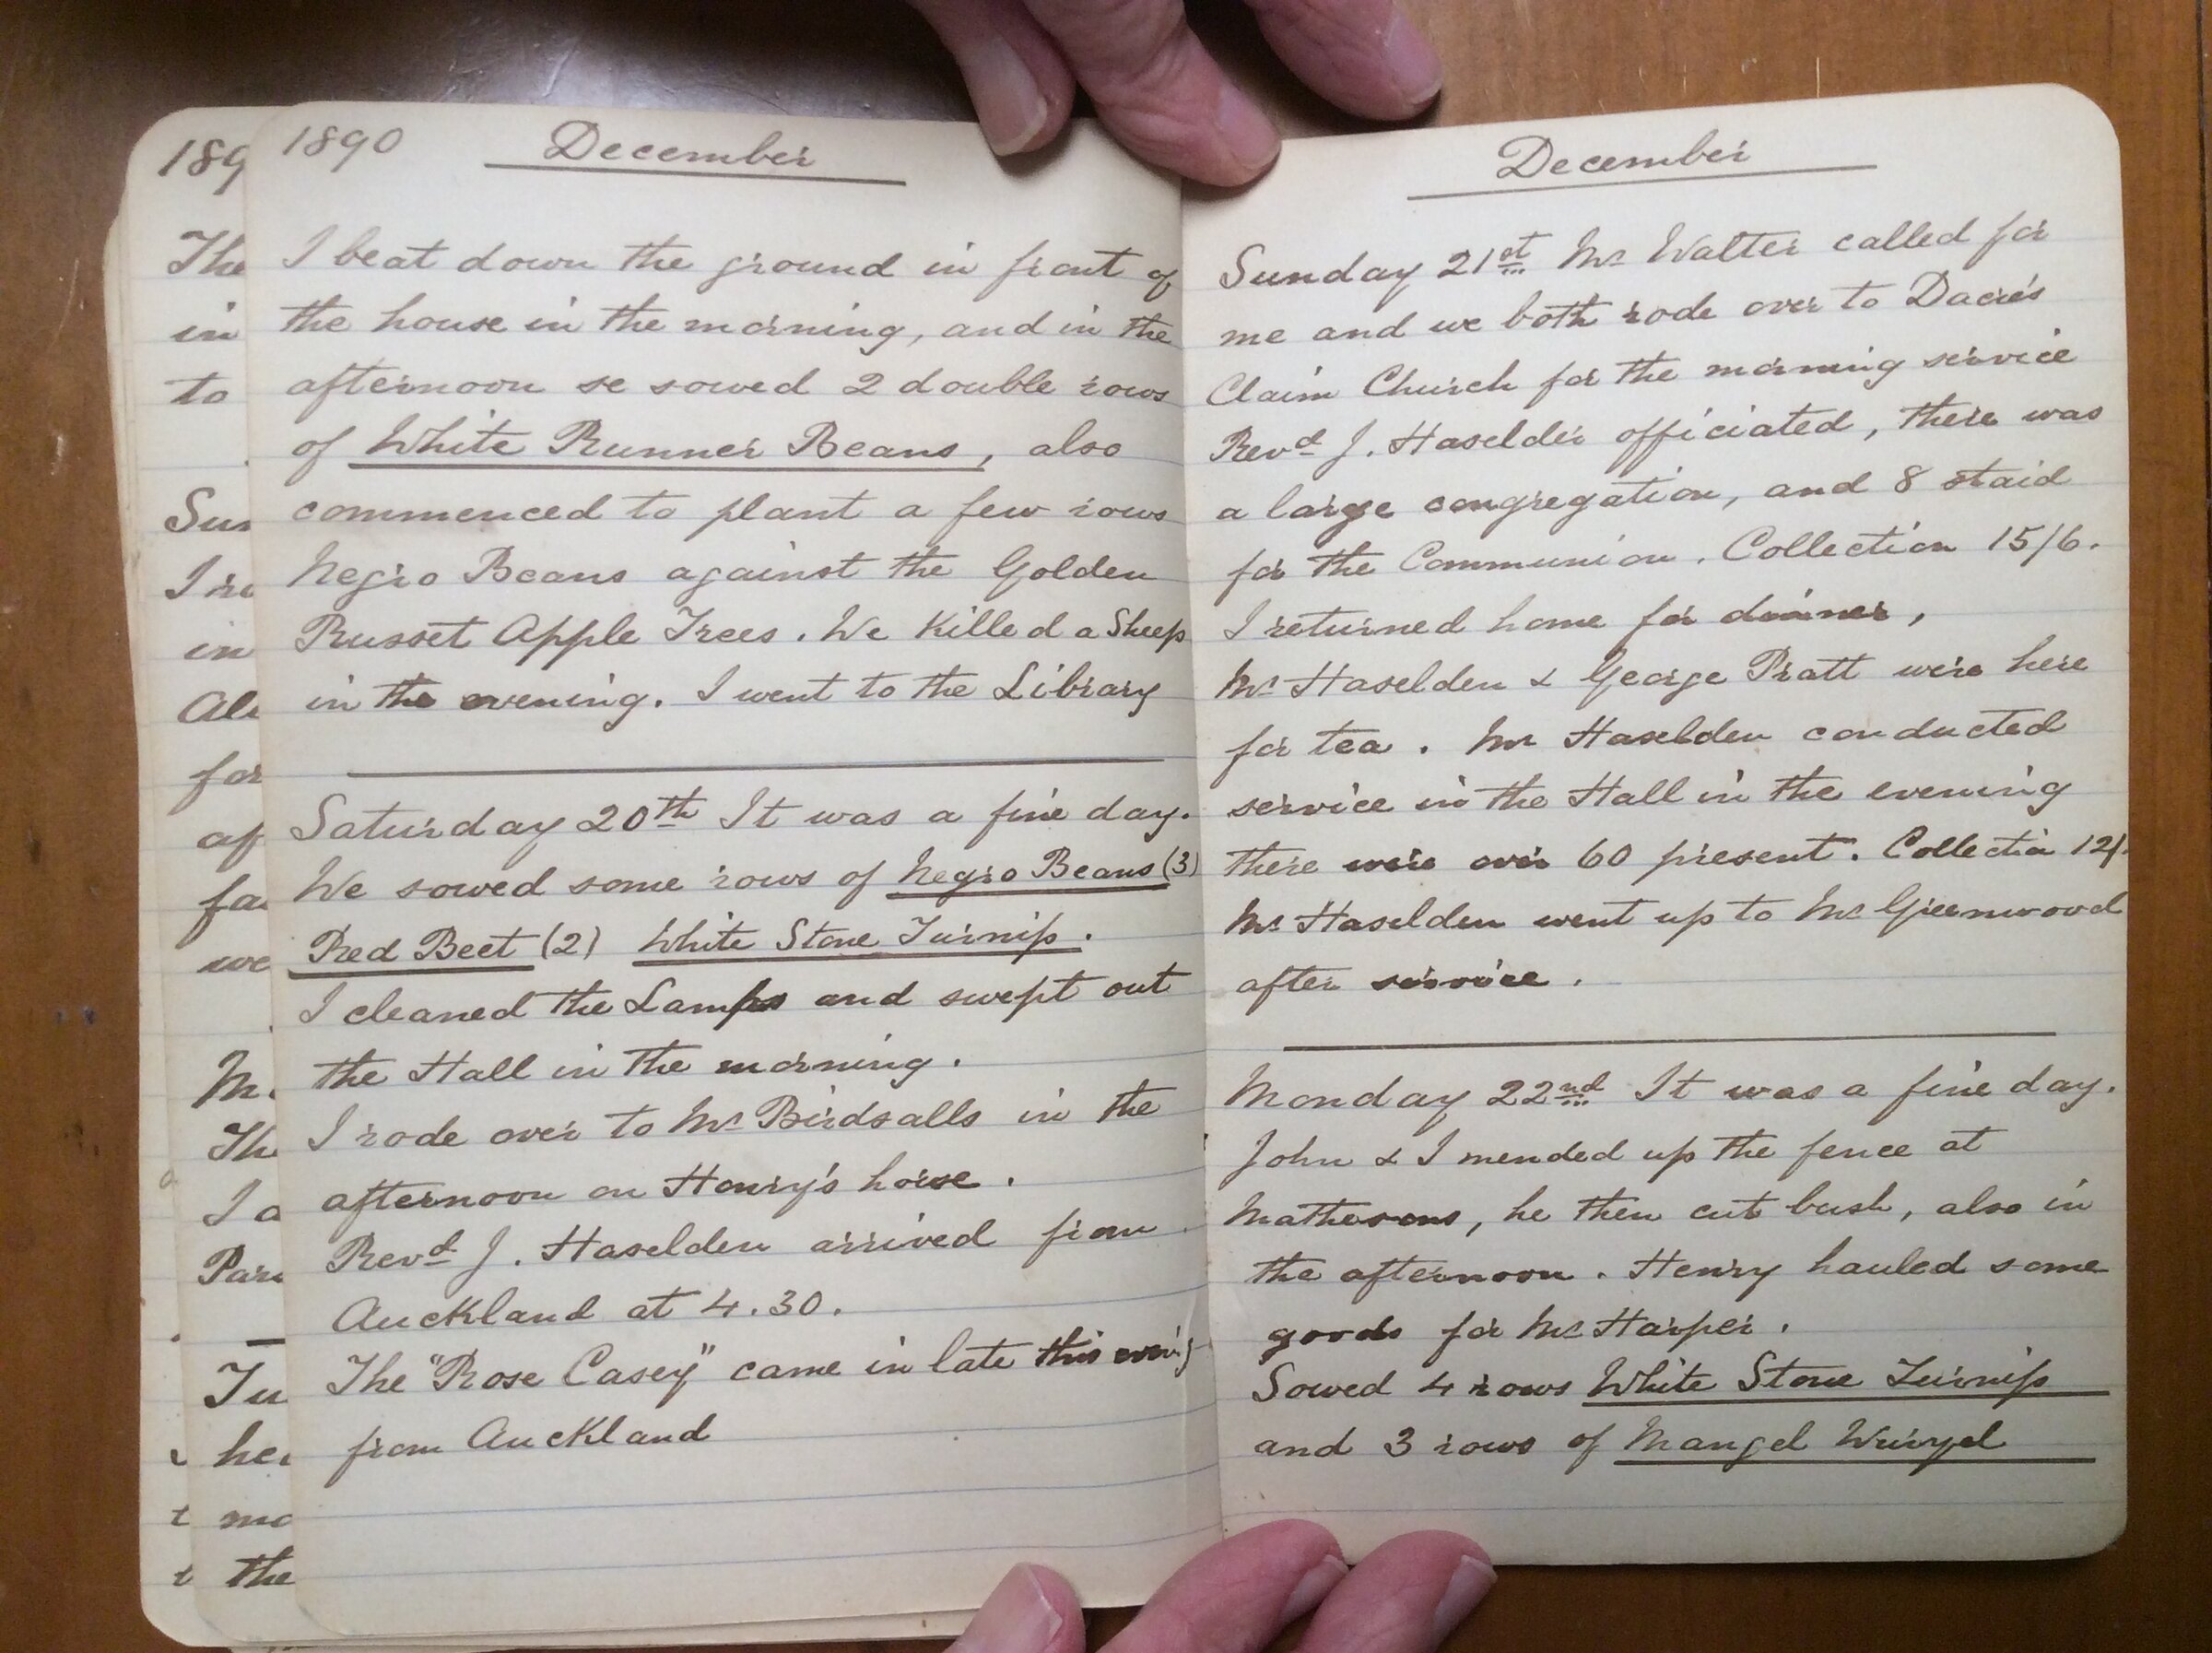 1890 December
I beat down the ground in front of
the house in the morning, and in the
afternoon se sowed 2 double rows
of White Runner Beans, also
commenced to plant a few rows
Negro Beans against the Golden
Russet Apple Trees. We Killed a Sheep
in the evening. I went to the Library
Saturday 20th It was a fine day.
We sowed some rows of Negro Beans (3)
Red Beet (2) White Stone Turnip.
I cleaned the Lamps and swept out
the Hall in the morning.
I rode over to Mr Birdsalls in the
afternoon on Henry's horse.
Revd J. Haselden arrived from
Auckland at 4.30.
The "Rose Casey" came in late this
from Auckland
December
Sunday 21st Mr Walter called for
me and we both rode over to Dacre's
Claim Church for the morning service
Revd J. Haselden officiated, there was
a large congregation, and 8 staid
for the Communion. Collection 15/6.
I returned home for dinner,
Mr Haselden & George Pratt were here
for tea. Mr Haselden conducted
service in the Hall in the evening
there were over 60 present. Collection 12/
Mr Haselden went up to Mr Greenwood
after service.
Monday 22nd It was a fine day.
John & I mended up the fence at
Mathesons, he then cut bush, also in
the afternoon. Henry hauled some
goods for Mr Harper.
Sowed 4 rows White Stone Turnip
and 3 rows of Mangel Wurzel
189
The
in
to
Sun
I
in
for
we
Th
I
Tu
the